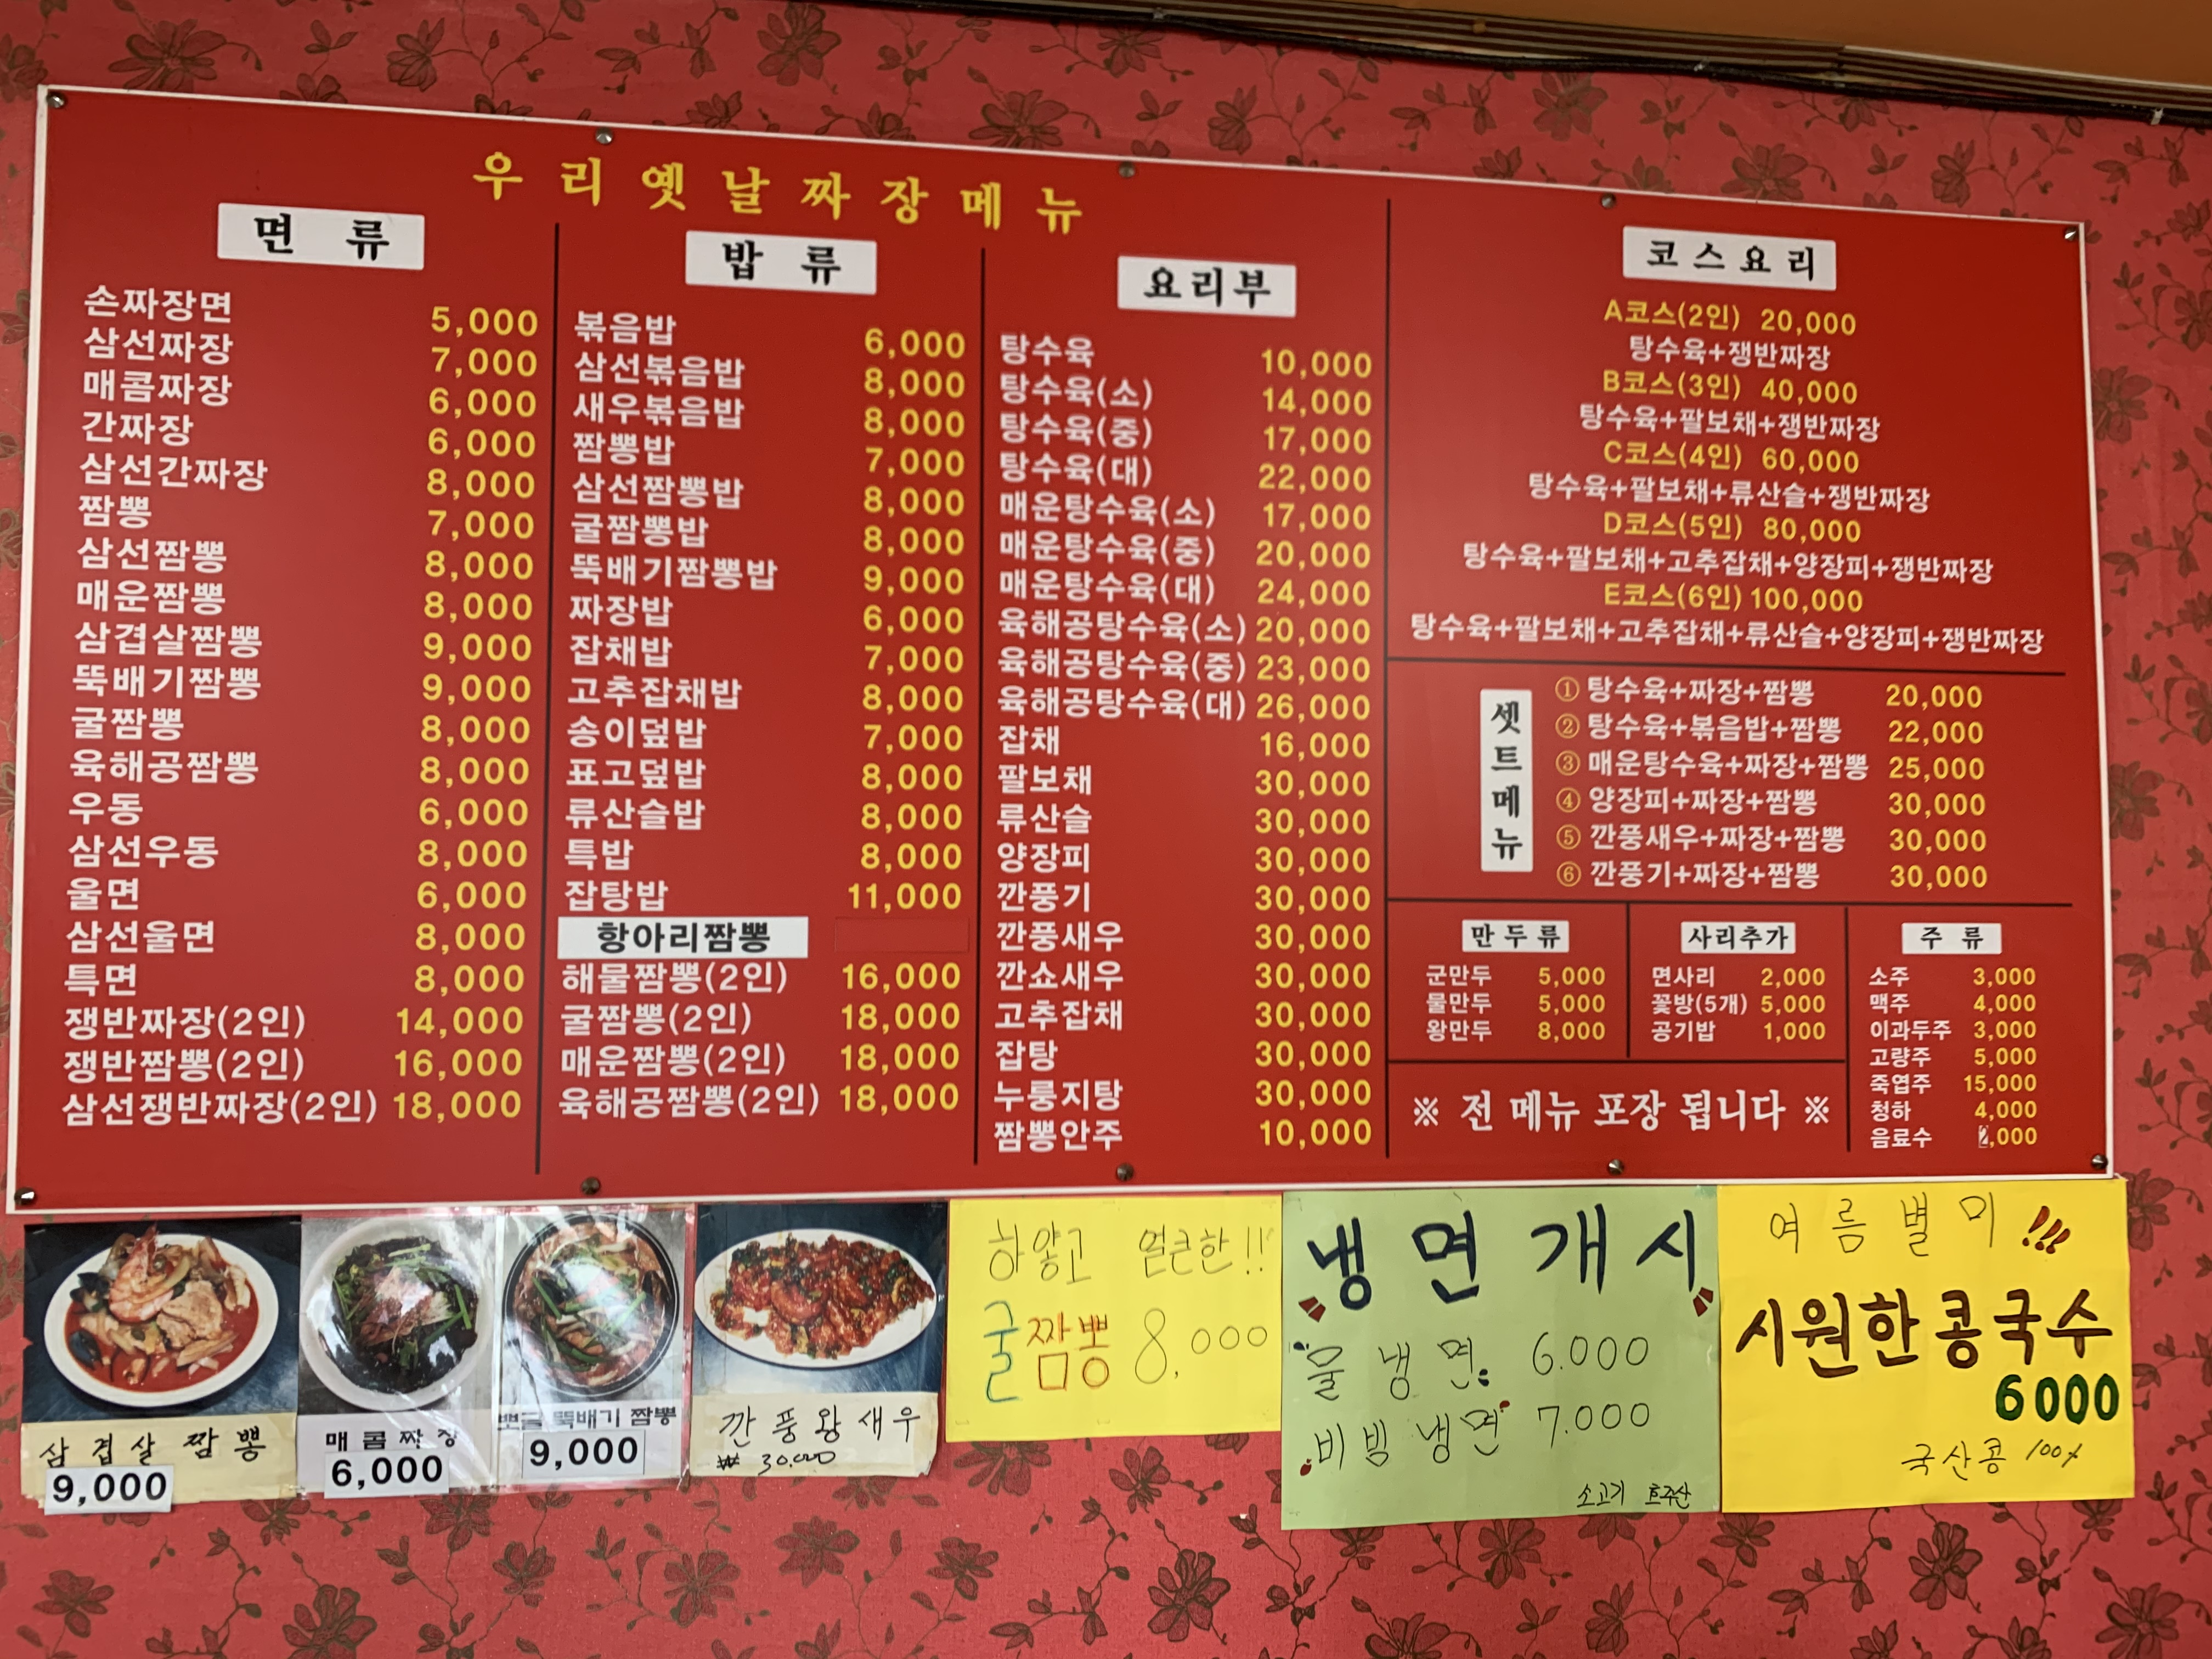 우리옛날짜장메뉴
면 류
손짜장면 5,000
삼선짜장 7,000
매콤짜장 6,000
간짜장 6,000
삼선간짜장 8,000
짬뽕 7,000
삼선짬뽕 8,000
매운짬뽕 8,000
삼겹살짬뽕 9,000
뚝배기짬뽕 9,000
굴짬뽕 8,000
육해공짬뽕 8,000
우동 6,000
삼선우동 8,000
울면 6,000
삼선울면 8,000
특면 8,000
쟁반짜장(2인) 14,000
쟁반짬뽕(2인) 16,000
삼선쟁반짜장(2인) 18,000
밥 류
볶음밥 6,000
삼선볶음밥 8,000
새우볶음밥 8,000
짬뽕밥 7,000
삼선짬뽕밥 8,000
굴짬뽕밥 8,000
뚝배기짬뽕밥 9,000
짜장밥 6,000
잡채밥 7,000
고추잡채밥 8,000
송이덮밥 7,000
표고덮밥 8,000
류산슬밥 8,000
특밥 8,000
잡탕밥 11,000
항아리짬뽕
해물짬뽕(2인) 16,000
굴짬뽕(2인) 18,000
매운짬뽕(2인) 18,000
육해공짬뽕(2인) 18,000
요리부
탕수육 10,000
탕수육(소) 14,000
탕수육(중) 17,000
탕수육(대) 22,000
매운탕수육(소) 17,000
매운탕수육(중) 20,000
매운탕수육(대) 24,000
육해공탕수육(소) 20,000
육해공탕수육(중) 23,000
육해공탕수육(대) 26,000
잡채 16,000
팔보채 30,000
류산슬 30,000
양장피 30,000
깐풍기 30,000
깐풍새우 30,000
깐쇼새우 30,000
고추잡채 30,000
잡탕 30,000
누룽지탕 30,000
짬뽕안주 10,000
코스요리
A코스(2인) 20,000
탕수육+쟁반짜장
B코스(3인) 40,000
탕수육+팔보채+쟁반짜장
C코스(4인) 60,000
탕수육+팔보채+류산슬+쟁반짜장
D코스(5인) 80,000
탕수육+팔보채+고추잡채+양장피+쟁반짜장
E코스(6인) 100,000
탕수육+팔보채+고추잡채+류산슬+양장피+쟁반짜장
셋트메뉴
① 탕수육+짜장+짬뽕 20,000
② 탕수육+볶음밥+짬뽕 22,000
③ 매운탕수육+짜장+짬뽕 25,000
④ 양장피+짜장+짬뽕 30,000
⑤ 깐풍새우+짜장+짬뽕 30,000
⑥ 깐풍기+짜장+짬뽕 30,000
만두류
군만두 5,000
물만두 5,000
왕만두 8,000
사리추가
면사리 2,000
꽃방(5개) 5,000
공기밥 1,000
주 류
소주 3,000
맥주 4,000
이과두주 3,000
고량주 5,000
죽엽주 15,000
청하 4,000
음료수 2,000
※ 전 메뉴 포장 됩니다 ※
삼겹살 짬뽕
9,000
매콤짜장
6,000
뽀글 뚝배기 짬뽕
9,000
깐풍왕새우
₩ 30,000
하얗고 얼큰한!!
굴짬뽕 8,000
냉면개시
물냉면: 6.000
비빔냉면 7.000
소고기 호주산
여름별미!!!
시원한콩국수
6000
국산콩 100%